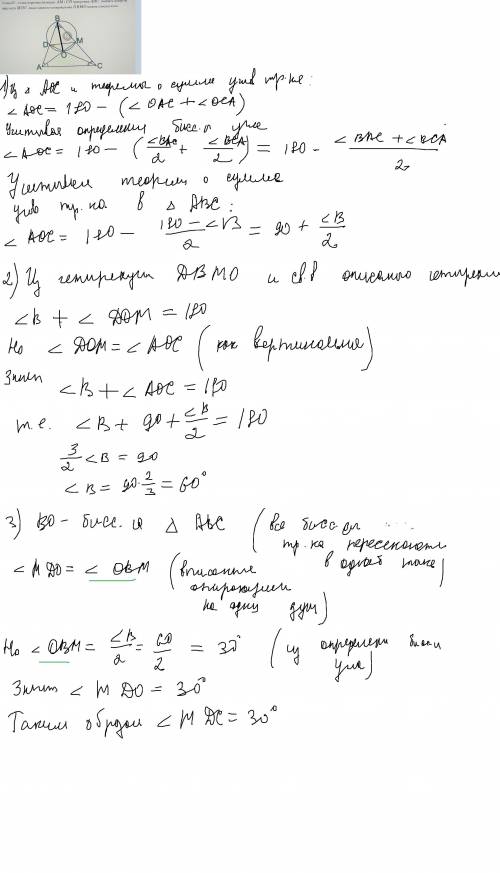 B
D
M
O
A
C
1) Из △ AOC и теоремы о сумме углов тр-ке:
∠AOC = 180 − (∠OAC + ∠OCA)
Учитывая определени бисс. угла
∠AOC = 180 − (∠BAC/2 + ∠BCA/2) = 180 − (∠BAC + ∠BCA)/2
Учитывая теорему о сумма
углов тр. ка в △ ABC:
∠ AOC = 180 − (180 − ∠B)/2 = 90 + ∠B/2
2) Из четырехуг DBMO и св.в описаного четырехуг
∠B + ∠ DOM = 180
Но ∠ DOM = ∠ AOC (как вертикальные)
Значит ∠B + ∠AOC = 180
т.е. ∠B + 90 + ∠B/2 = 180
3/2 ∠B = 90
∠B = 90 · 2/3 = 60°
3) BO - бисс. △ ABC (все бисс
тр. ка пересекают
в одной точке)
∠ MDO = ∠ OBM (вписаные
опирающиеся
на одну дугу)
Но ∠OBM = ∠B/2 = 60/2 = 30° (из определени бисси
угла)
Значит ∠ MDO = 30°
Таким образом ∠ MDC = 30°